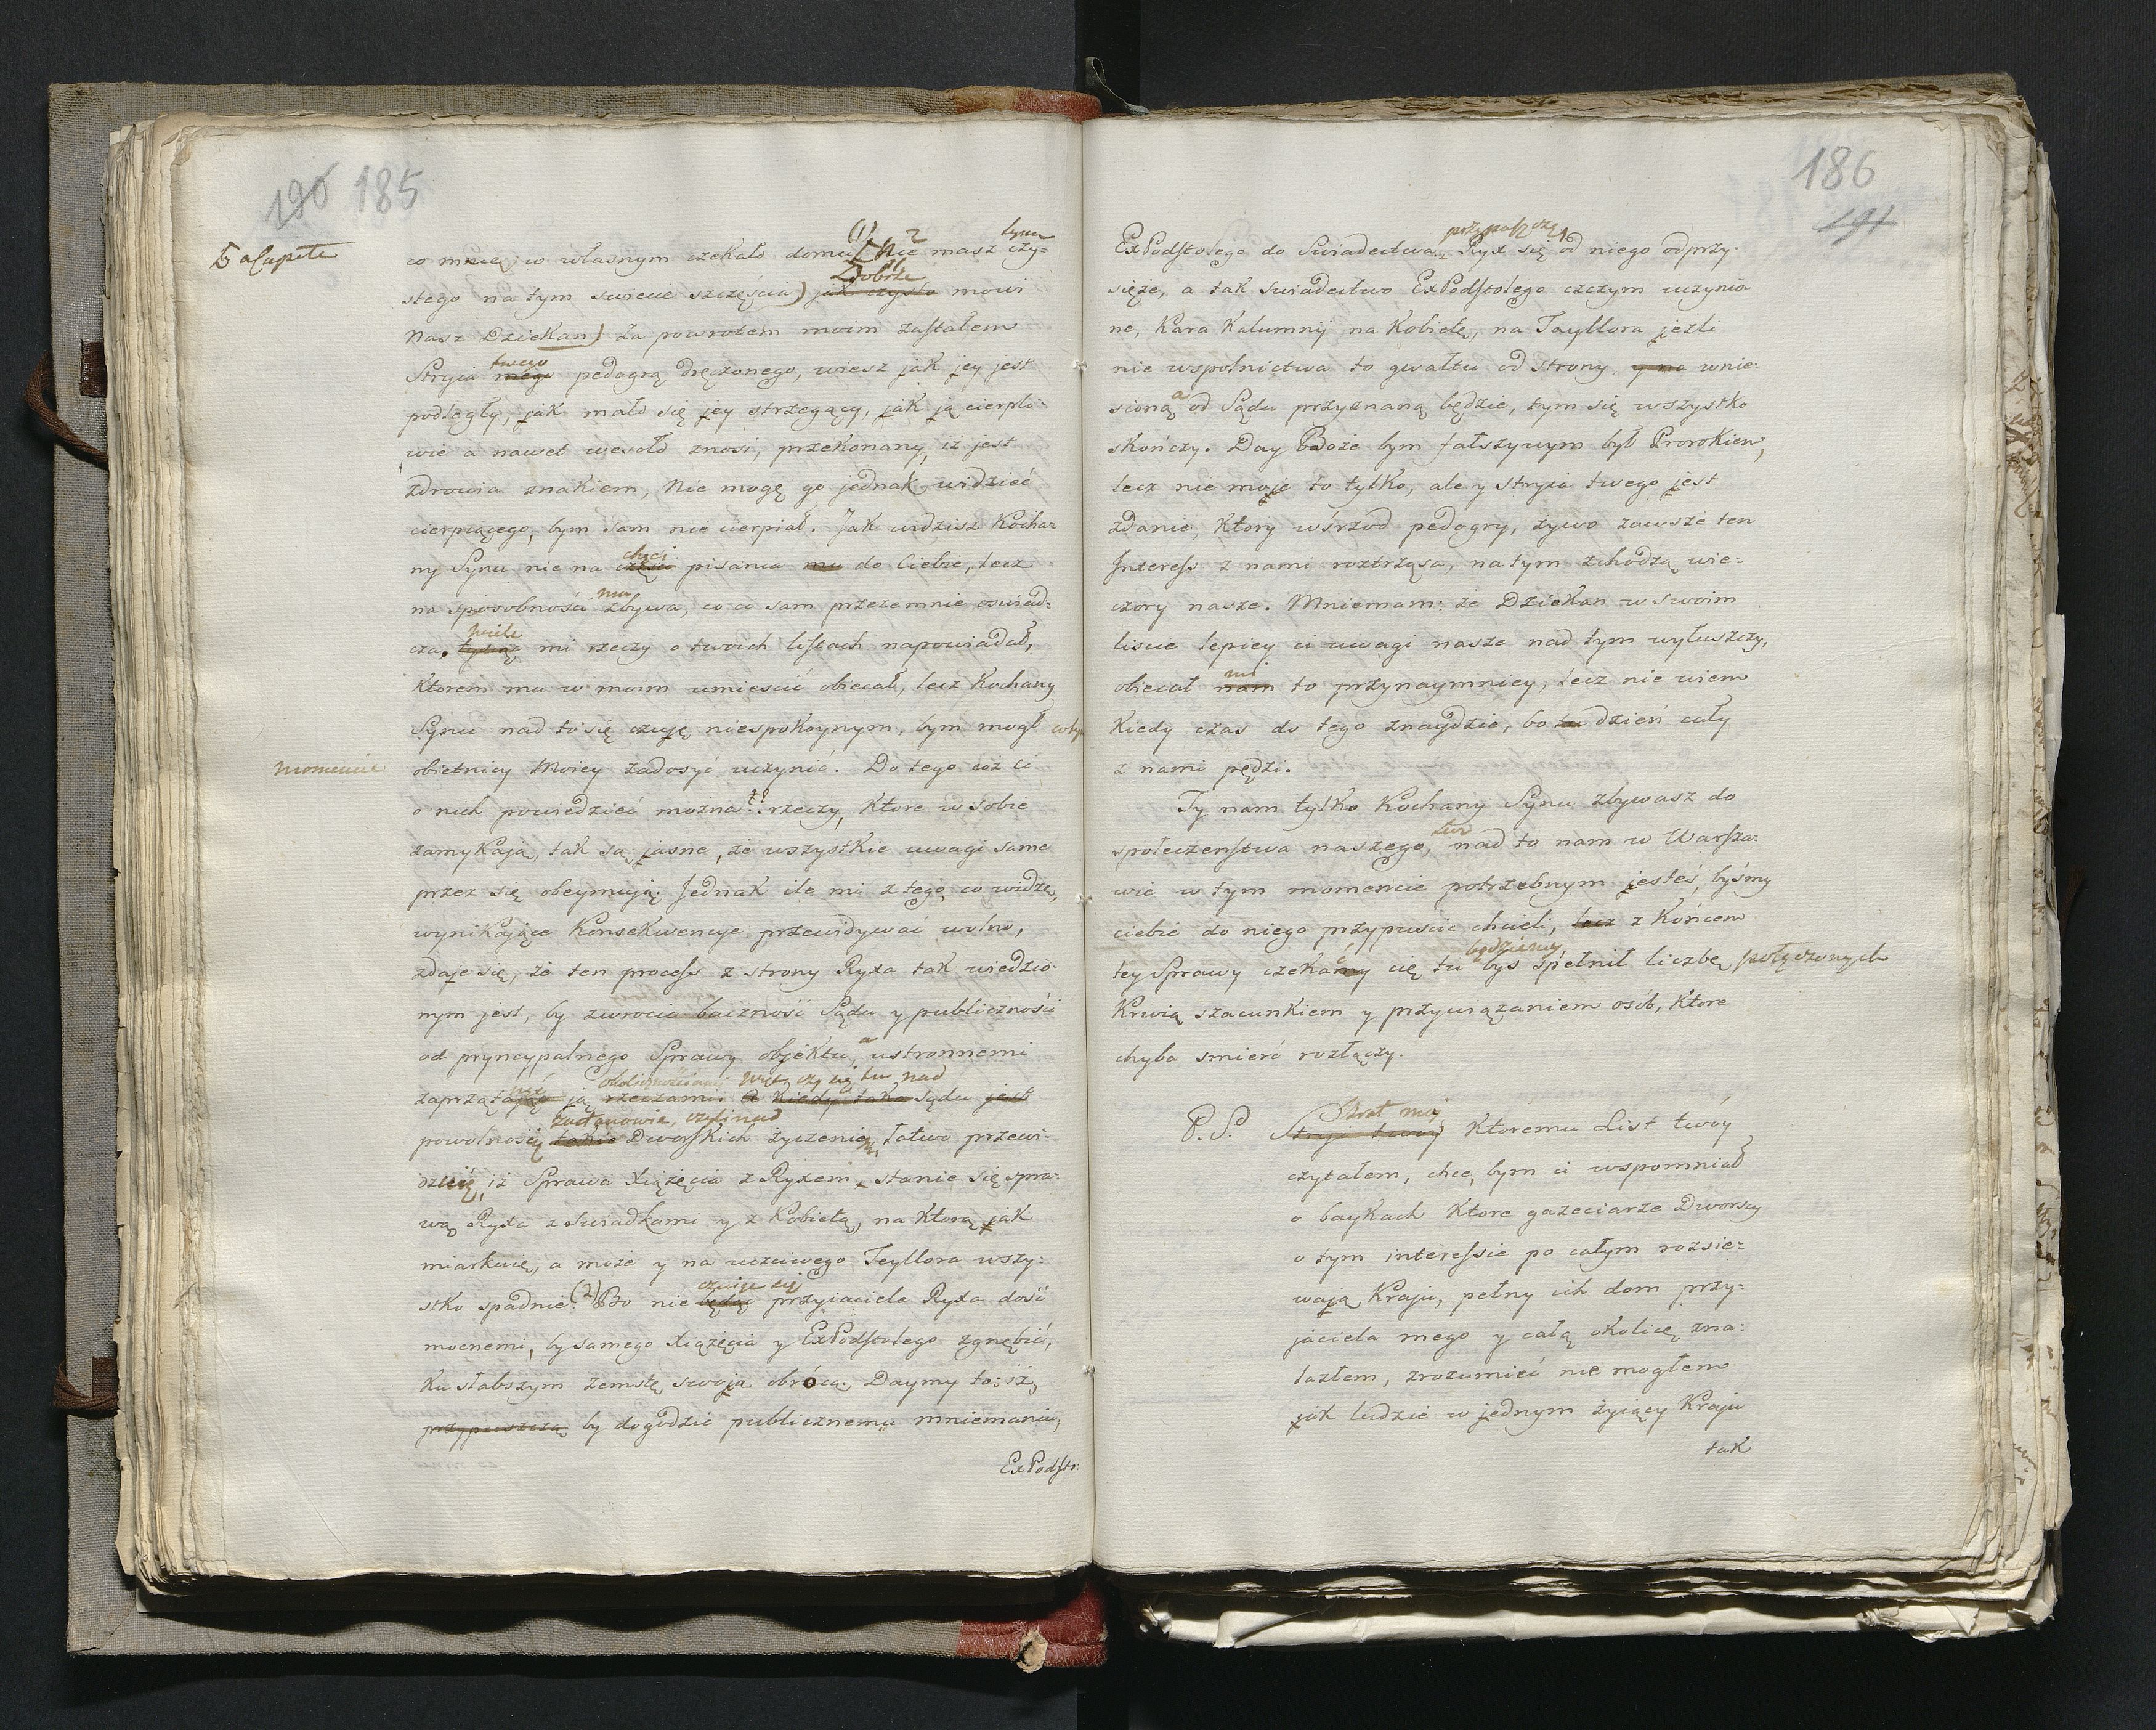 190 185
a Capite
(1) 2 tym
co mnie w własnym czekało domu [Nie masz czy=
Dobrze
stego na tym swiecie szczęścia) jak czysto mowi
Nasz Dziekan) Za powrotem moim zastałem
twego
Stryia mego pedogrą dręczonego, wiesz jak jey jest
podległy, jak mało się jey strzegący, jak ją cierpli=
wie a nawet wesoło znosi, przekonany, iż jest
zdrowia znakiem, Nie mogę go jednak widzieć
cierpiącego, bym sam nie cierpiał. Jak widzisz Kocha=
chęci
ny Synu nie na części pisania mu do Ciebie, lecz
mu
na sposobności zbywa, co ci sam przezemnie oswiad=
wiele
cza. tysiąc mi rzeczy o twoich listach napowiadał,
Ktorem mu w moim umiescić obiecał, lecz Kochany
Synu nad to się czuję niespokoynym, bym mogł
momencie
obietnicy Moiey zadosyć uczynić. Do tego coż ci
o nich powiedzieć można?? rzeczy, Ktore w sobie
zamykają, tak są jasne, że wszystkie uwagi same
przez się obeymują. Jednak ile mi z tego, co widzę,
wynikające Konsekwencye przewidywać wolno,
zdaje się, że ten process z strony Ryxa tak wiedzio=
nym jest, by zwrocić baczność Sądu y publiczności
a
od pryncypalnego Sprawy objektu, ustronnemi
okolicznościami więc czy się tu nad
zaprzątając ją rzeczami. A Kiedy taka sądu jest
zastanowię, czyli nad
powolnością takie Dworskich życzenia, łatwo przewi=
dzieć, iż Sprawa Xiążęcia z Ryxem, stanie się spra=
wą Ryxa z Swiadkami y z Kobietą, na Ktorą jak
miarkuię, a może y na uczciwego Teyllora wszy=
czuje się
stko spadnie. (2) Bo nie będąc przyiaciele Ryxa dość
mocnemi, by samego Xiążęcia y ExPodstolego zgnębić,
Ku słabszym zemstę swoją obrócą. Daymy to: iż,
przypuszczą by dogodzić publicznemu mniemaniu,
ExPodsto:
186
191
przypuszczą
ExPodstolego do Swiadectwa, Ryx się od niego odprzy=
sięże, a tak swiadectwo ExPodstolego czczym uczynio=
ne, Kara Kalumnij na Kobietę, na Tayllora jeżli
nie wspolnictwa to gwałtu od Strony y na wnie=
a
sioną od Sądu przyznaną będzie, tym się wszystko
skończy. Day Boże bym fałszywym był Prorokiem,
lecz nie moje to tylko, ale y stryia twego jest
zdanie, Ktory wśrzod pedogry, żywo zawsze ten
Interess z nami roztrząsa, na tym schodzą wie=
czory nasze. Mniemam: że Dziekan w swoim
liscie lepiey ci uwagi nasze nad tym wyłuszczy,
mi
obiecał nam to przynaymniey, lecz nie wiem
Kiedy czas do tego znaydzie, bo tu dzień cały
z nami pędzi.
Ty nam tylko Kochany Synu zbywasz do
społeczenstwa naszego, nad to nam w Warsza=
wie w tym momencie potrzebnym jesteś, byśmy
ciebie do niego przypuscić chcieli, lecz z Końcem
będziemy
tey Sprawy czekamy cię tu bys spełnił liczbę połączonych
Krwią szacunkiem y przywiązaniem osób, Ktore
chyba smierć rozłączy.
Brat moj
P.S. Stryj twoj Ktoremu List twóy
czytałem, chce, bym ci wspomniał
o baykach Ktore gazeciarze Dworscy
o tym interessie po całym rozsie=
wają Kraju, pełny ich dom przy=
jaciela mego y całą okolicę zna=
lazłem, zrozumieć nie mogłem
jak ludzie w jednym żyiący Kraju
tak